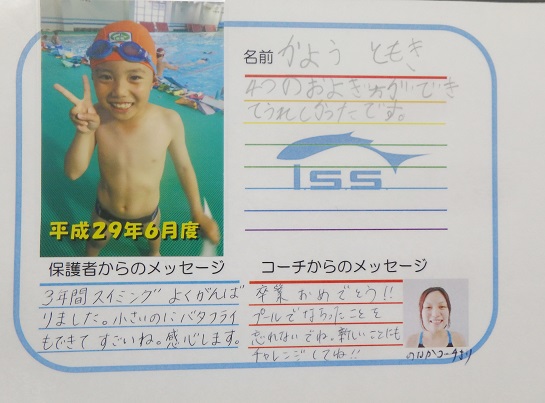 名前 かよう ともき
4つのおよぎができ
てうれしかったです。
ISS
平成29年6月度
保護者からのメッセージ
3年間スイミングよくがんば
りました。小さいのにバタフライ
もできてすごいね。感心します。
コーチからのメッセージ
卒業おめでとう!!
プールでならったことを
忘れないでね。新しいことにも
チャレンジしてね!!
のはかコーチより